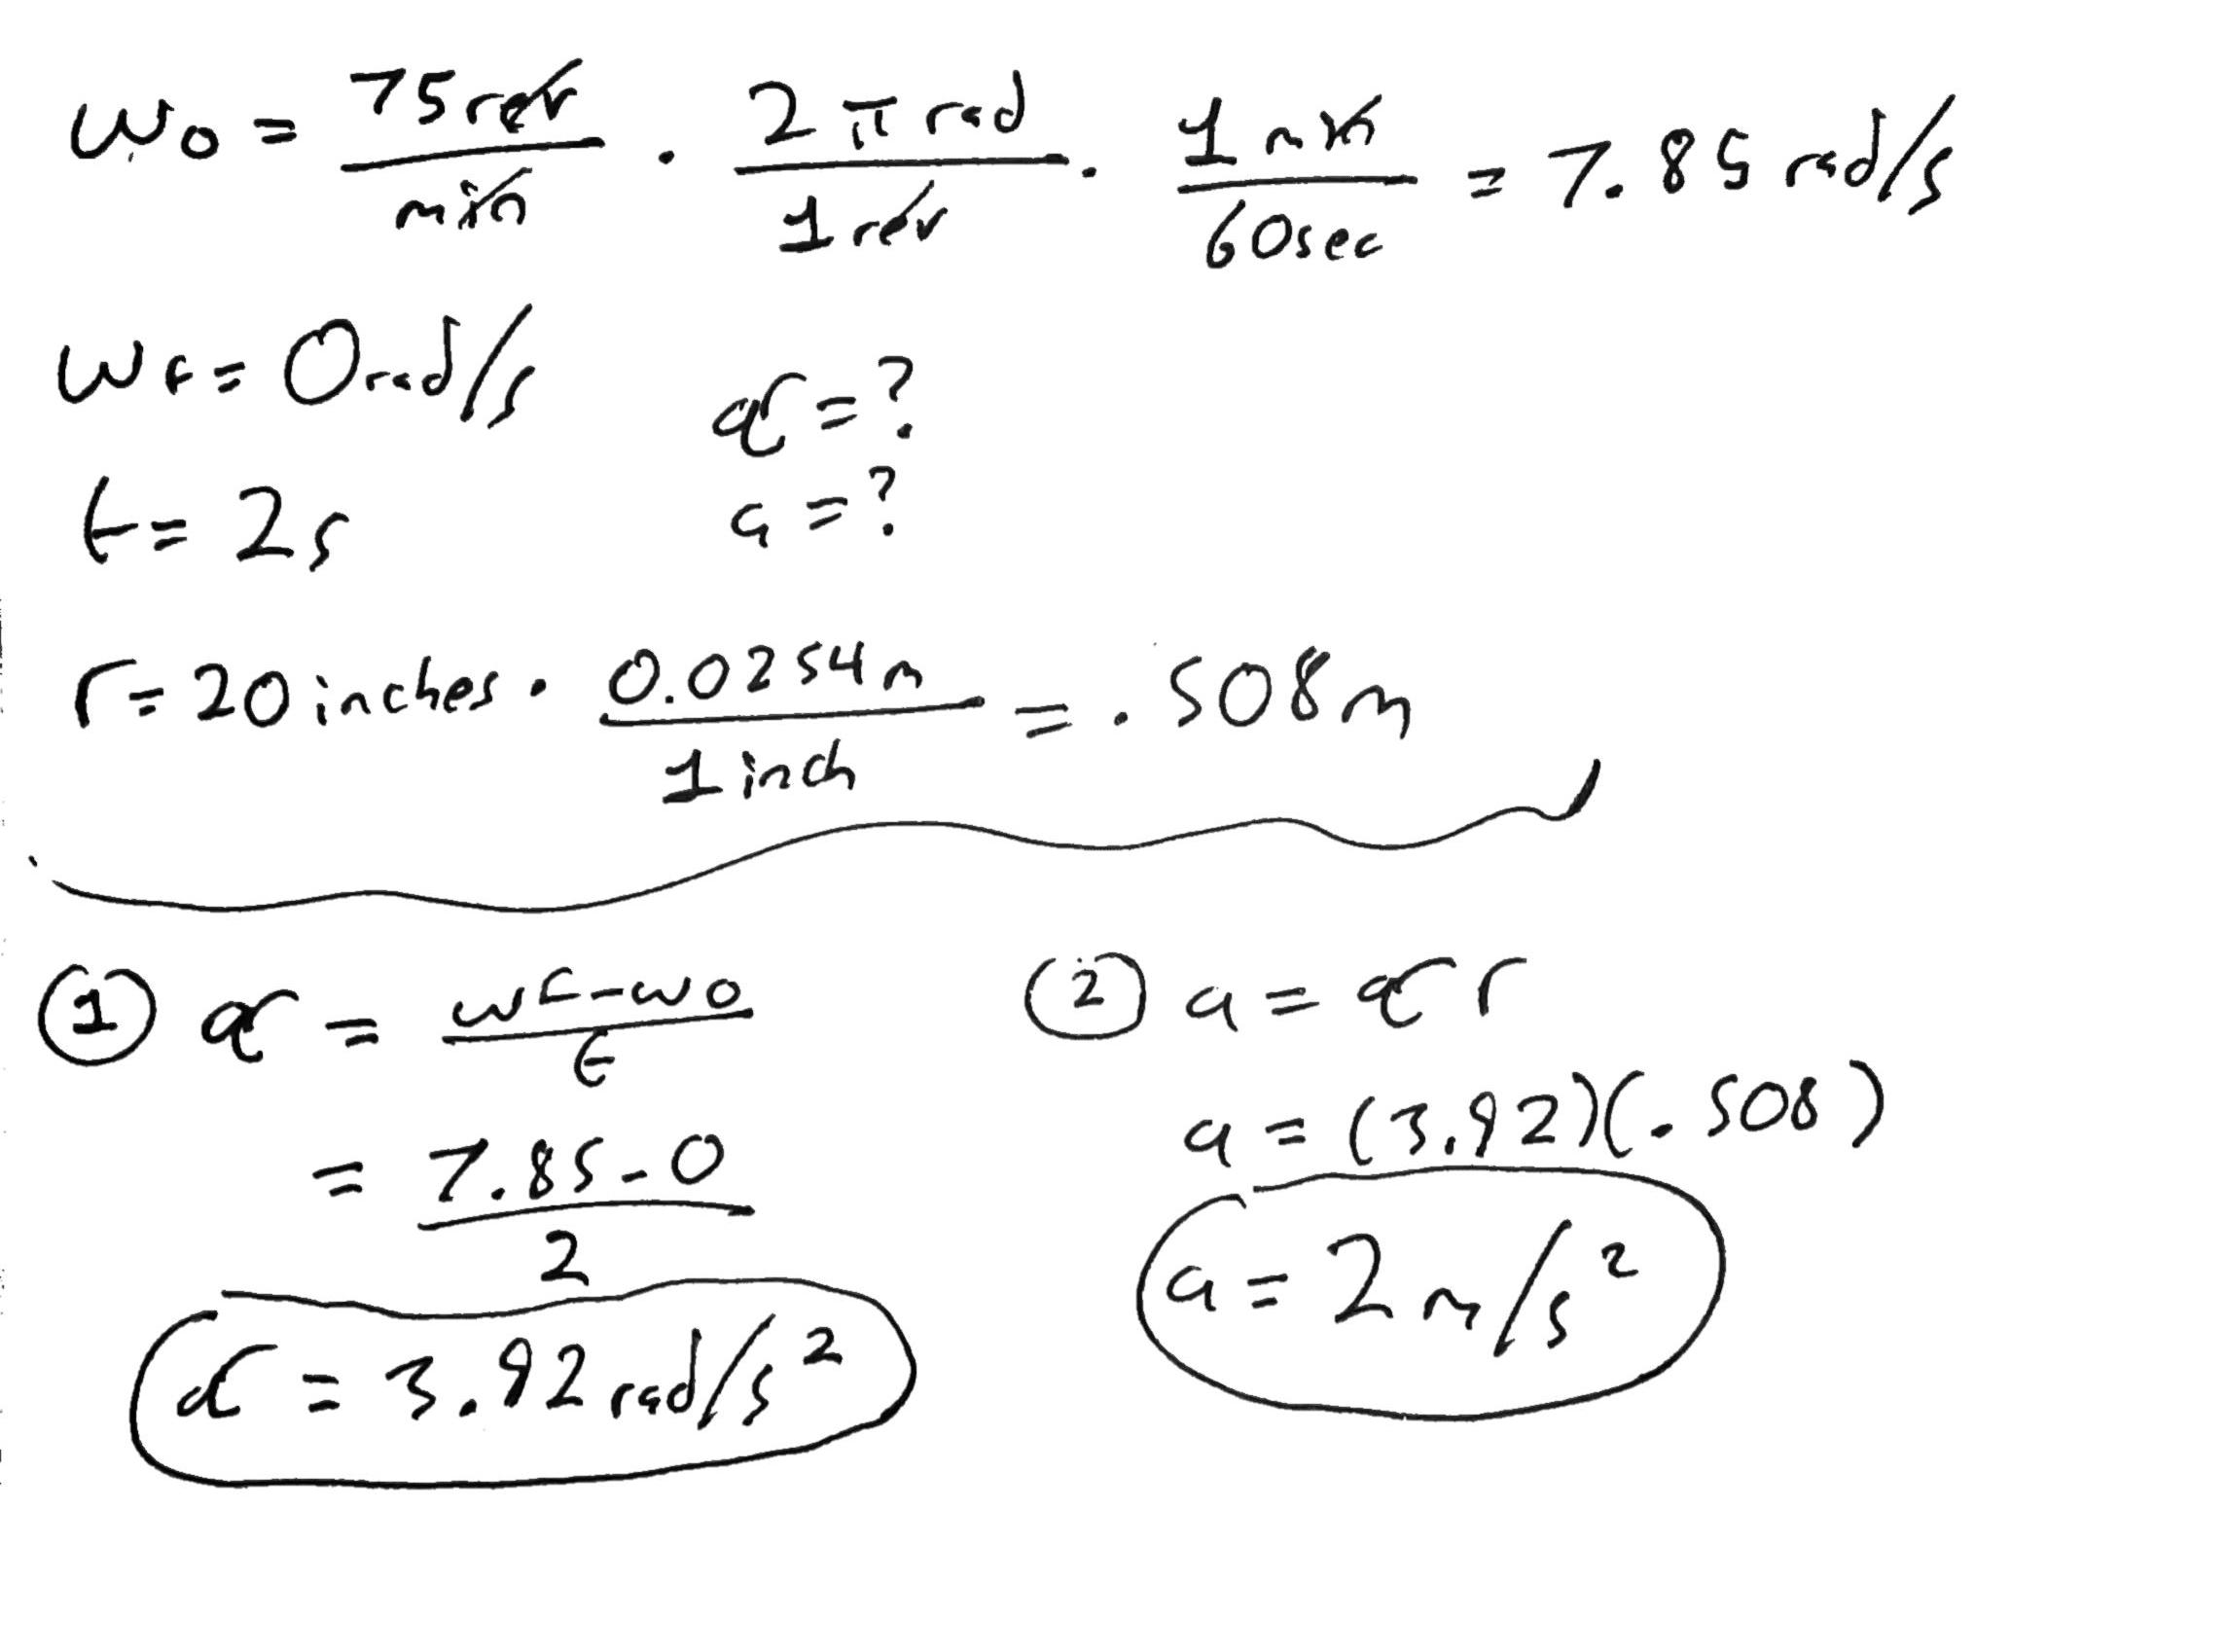 ω₀ = 75 rev / min · 2π rad / 1 rev · 1 min / 60 sec = 7.85 rad/s
ωF = 0 rad/s
α = ?
t = 2s
a = ?
r = 20 inches · 0.0254 m / 1 inch = .508 m
① α = ωF - ω₀ / t
= 7.85 - 0 / 2
α = 3.92 rad/s²
② a = α r
a = (3.92)(.508)
a = 2 m/s²